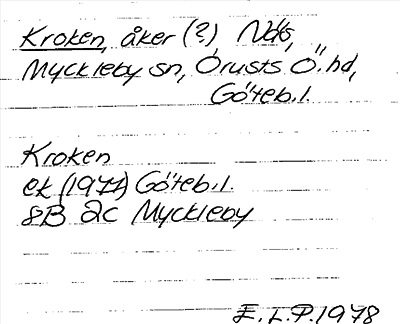 Kroken, åker (?), Näs,
Myckleby sn, Orusts Ö. hd,
Göteb.l.
Kroken
ek (1971) Göteb.l.
8B 2c Myckleby
E.L.P.1978